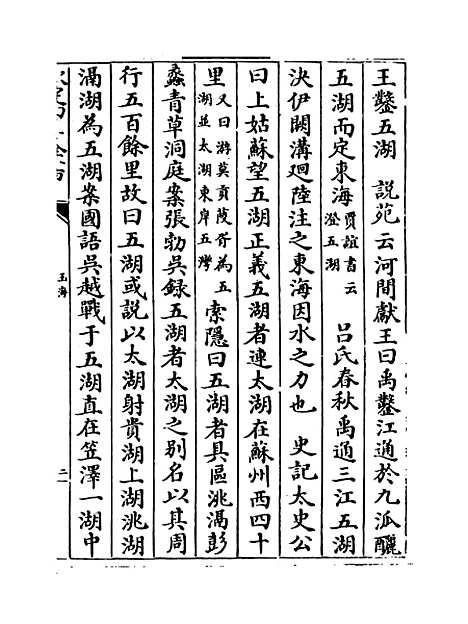 王鑿五湖　說苑云河間獻王曰禹鑿江通於九派釃
五湖而定東海賈誼書云澄五湖　呂氏春秋禹通三江五湖
決伊闕溝廻陸注之東海因水之力也　史記太史公
曰上姑蘇望五湖正義五湖者連太湖在蘇州西四十
里又曰游莫貢陵胥為五湖並太湖東岸五灣　索隱曰五湖者具區洮滆彭
蠡青草洞庭案張勃吳録五湖者太湖之别名以其周
行五百餘里故曰五湖或說以太湖射貴湖上湖洮湖
滆湖為五湖案國語吳越戰于五湖直在笠澤一湖中
玉海
二